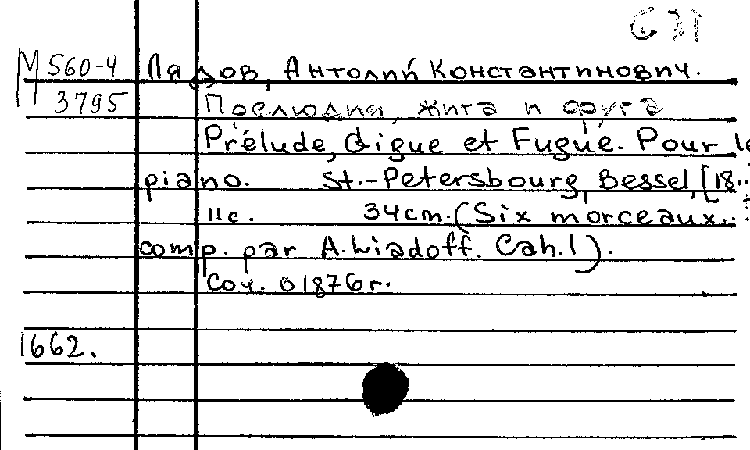 М560-4 Лядов, Антолий Константинович.
3795 Прелюдия, жига и фуга
Prélude, Gigue et Fugue. Pour le
piano. St.-Petersbourg, Bessel, [18..
11 с. 34 cm. (Six morceaux...
comp. par A. Liadoff. Cah. I).
Соч. 01876г.
1662.